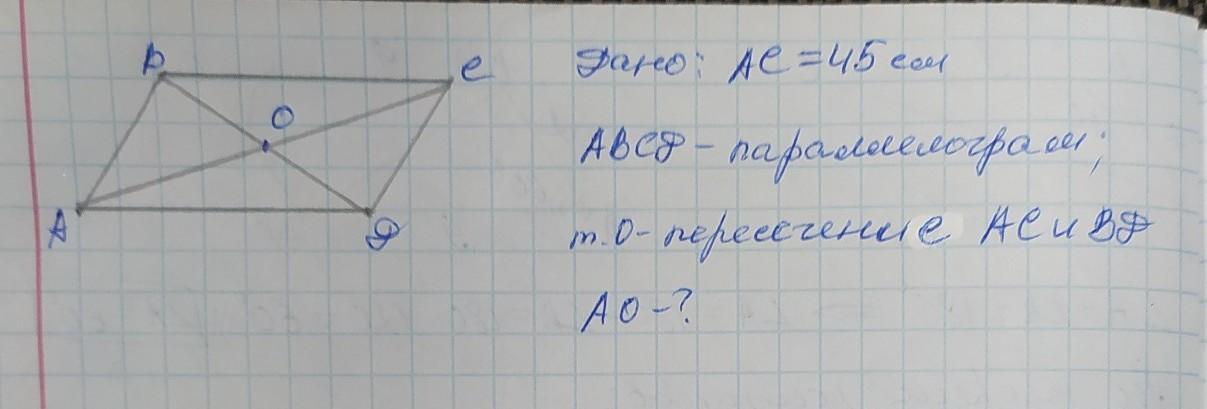 B
C
O
A
D
Дано: AC = 45 см
ABCD - параллелограм;
т. O - пересечение AC и BD
AO - ?